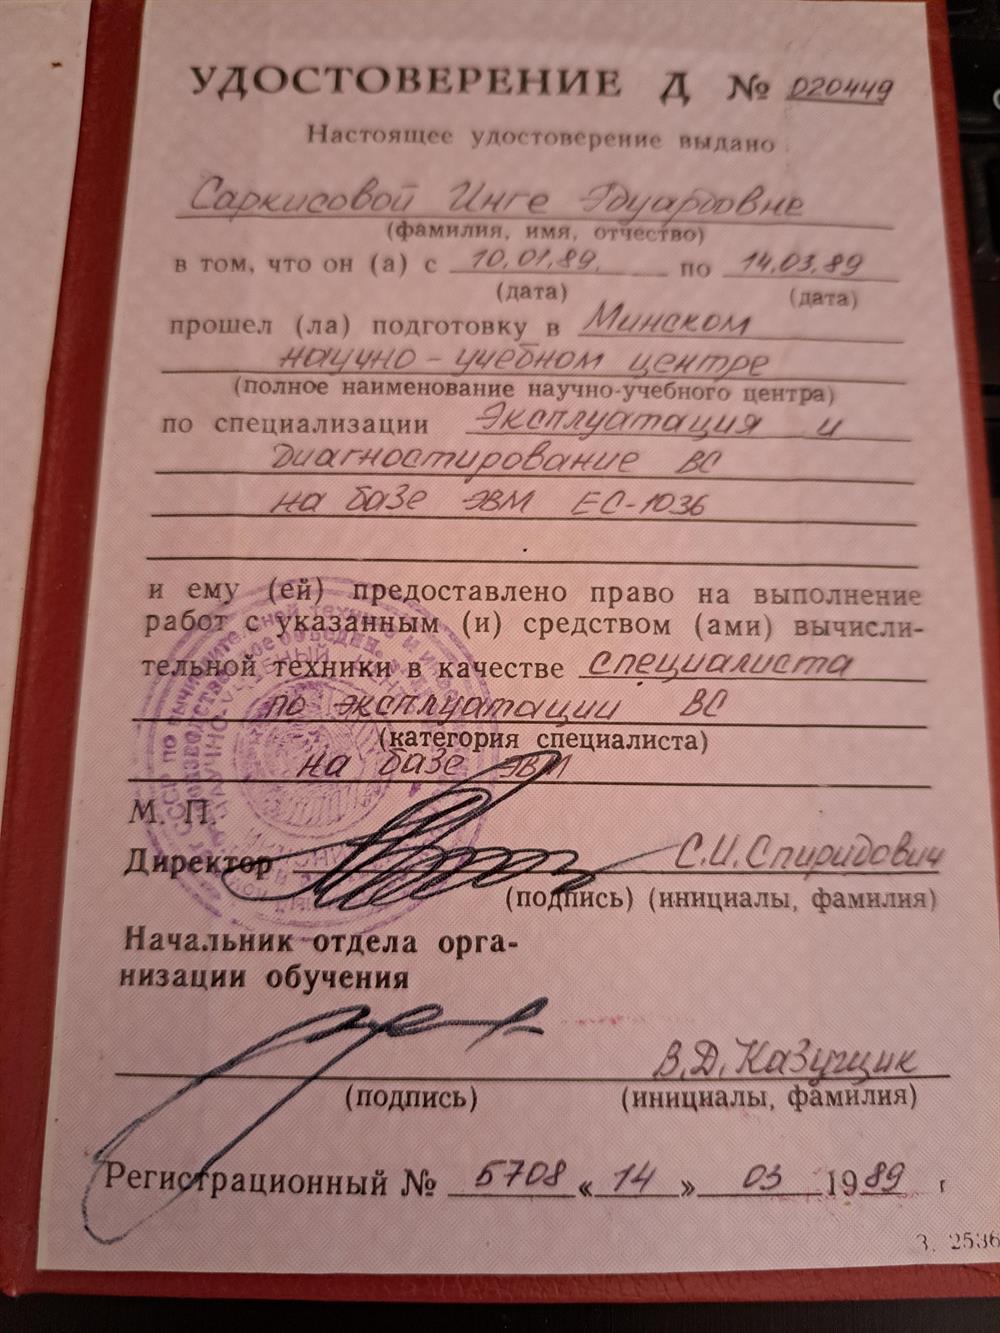 УДОСТОВЕРЕНИЕ Д № 020449
Настоящее удостоверение выдано
Саркисовой Инге Эдуардовне
(фамилия, имя, отчество)
в том, что он (а) с 10.01.89. по 14.03.89
(дата) (дата)
прошел (ла) подготовку в Минском
научно-учебном центре
(полное наименование научно-учебного центра)
по специализации Эксплуатация и
Диагностирование ВС
на базе ЭВМ ЕС-1036
и ему (ей) предоставлено право на выполнение
работ с указанным (и) средством (ами) вычисли-
тельной техники в качестве специалиста
по эксплуатации ВС
(категория специалиста)
на базе ЭВМ
М. П.
Директор С.И.Спиридович
(подпись) (инициалы, фамилия)
Начальник отдела орга-
низации обучения
В.Д.Казущик
(подпись) (инициалы, фамилия)
Регистрационный № 5708 «14» 03 1989 г
З. 2536